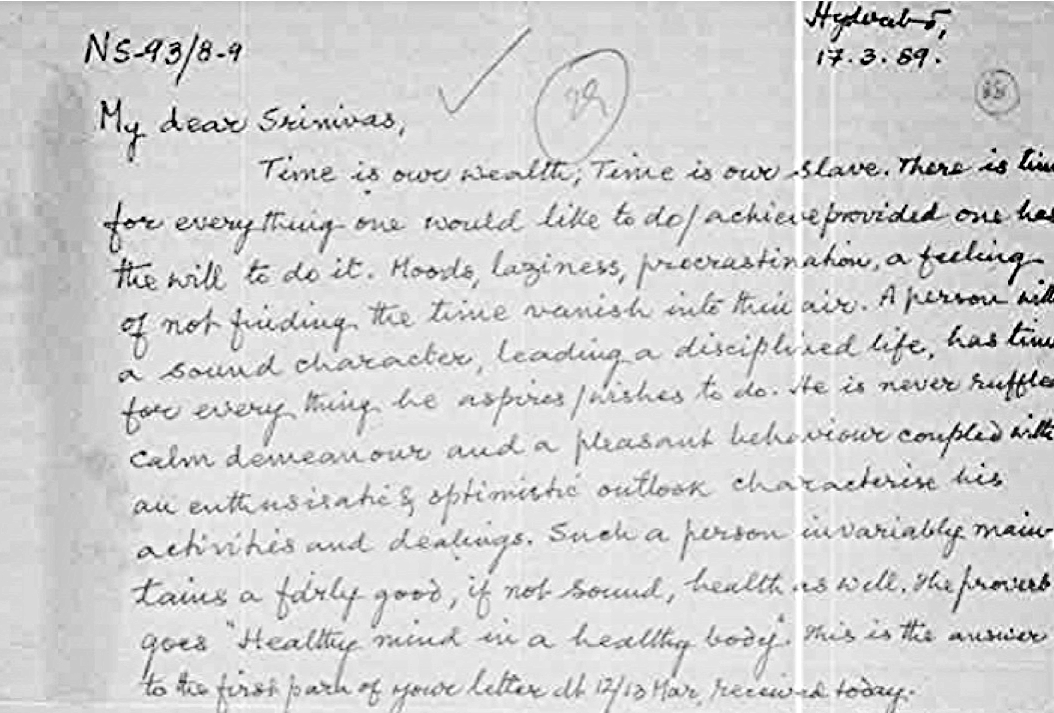 Hyderabad,
NS-93/8-9
17.3.89.
My dear Srinivas,
Time is our wealth; Time is our slave. There is tim
for everything one would like to do/achieve provided one has
the will to do it. Moods, laziness, procrastination, a feeling
of not finding the time vanish into thin air. A person with
a sound character, leading a disciplined life, has time
for everything he aspires/wishes to do. He is never ruffled
calm demeanour and a pleasant behaviour coupled with
an enthusisatic & optimistic outlook characterise his
activities and dealings. Such a person invariably main-
tains a fairly good, if not sound, health as well. The proverb
goes "Healthy mind in a healthy body". This is the answer
to the first para of your letter dt 12/13 Mar, received today.